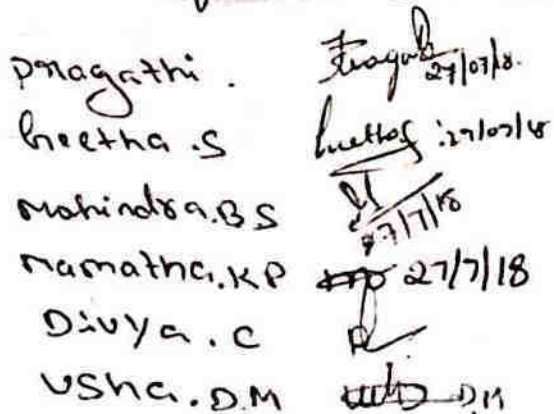 Pragathi. 27/07/18.
Geetha.S Geetha S :27/07/18
Mahindra.B S 27/7/18
Mamatha.KP 27/7/18
Divya.C
Usha.D.M D.M